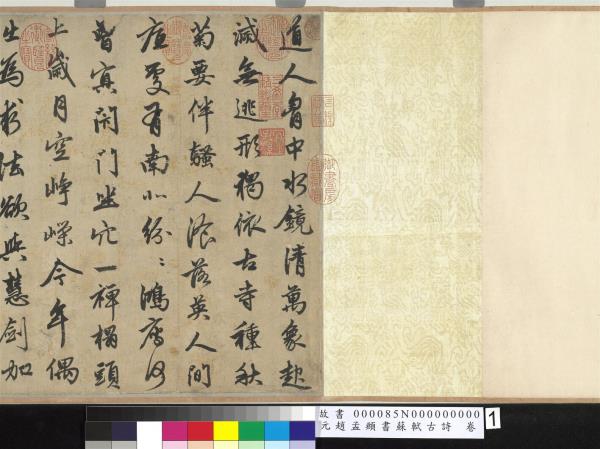 道人胷中水鏡清萬象起
滅無逃形獨依古寺種秋
菊要伴騷人湌落英人間
底處有南北紛〻鴻鴈何
曾冥閉門坐穴一禪榻頭
上歲月空崢嶸今年偶
出為求法欲與慧劍加
故書 000085N000000000
元趙孟頫書蘇軾古詩 卷
1